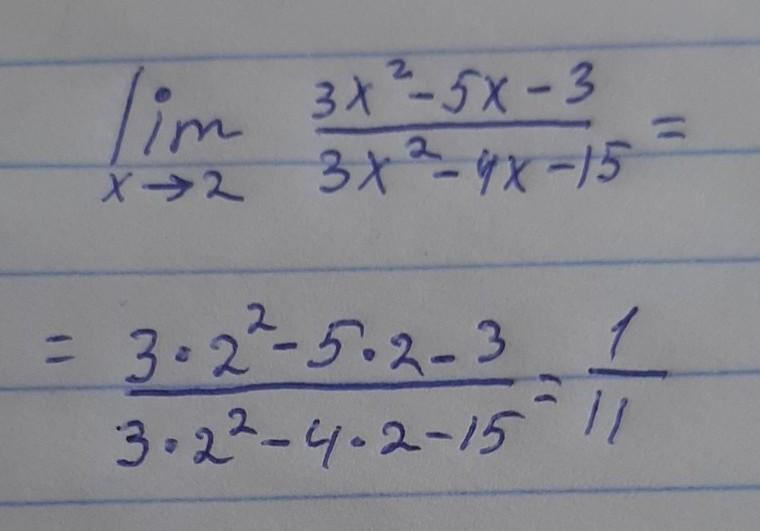 lim x→2 (3x² - 5x - 3)/(3x² - 4x - 15) =
= (3·2² - 5·2 - 3)/(3·2² - 4·2 - 15) = 1/11